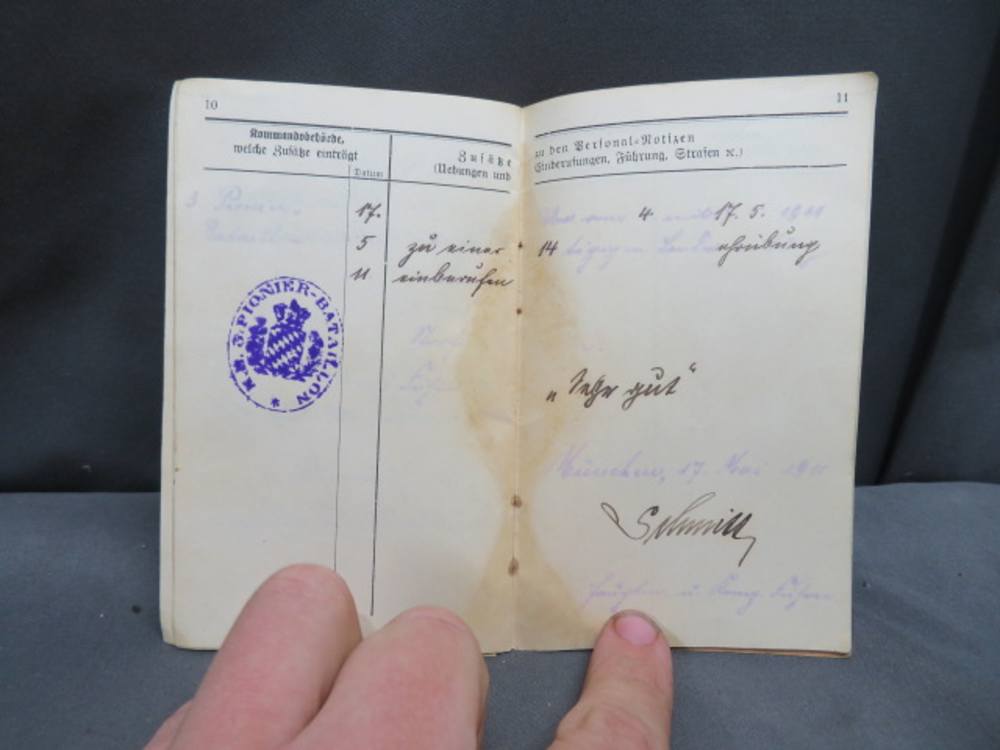 10
Kommandobehörde,
welche Zusätze einträgt
Datum
Zusätze
(Uebungen und
17.
5
11
zu einer
einberufen
K.B. 3. PIONIER-BATAILLON
11
zu den Personal-Notizen
Einberufungen, Führung, Strafen ꝛc.)
vom 4. mit 17. 5. 1911
14 tägigen Landwehrübung
„Sehr gut"
München, 17. Mai 1911
Schmitt
Hauptm. u. Komp. Führer